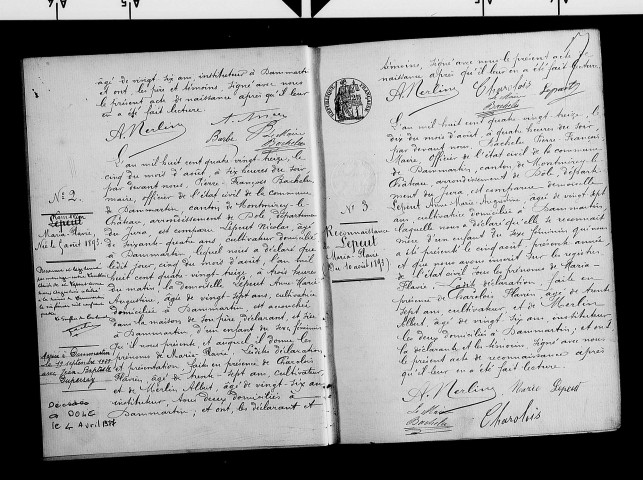 âgé de vingt six ans, instituteur à Dammartin
et ont, le père et témoins, signé avec nous
le présent acte de naissance après qu'il leur
en a été fait lecture.
A. Merlin
Le Maire
Bachelu
N° 2.
Lepeut
Marie Flavie,
Née le 5 août 1893
L'an mil huit cent quatre vingt treize, le
cinq du mois d'août, à six heures du soir
par devant nous, Pierre-François Bachelu
maire, officier de l'état civil de la commune
de Dammartin, canton de Montmirey-le-
Château, arrondissement de Dole, département
du Jura, est comparu Lepeut Nicolas, âgé
de soixante quatre ans, cultivateur domicilié
à Dammartin, lequel nous a déclaré que
le dit jour, cinq du mois d'août, l'an mil
huit cent quatre vingt treize, à trois heures
du matin la demoiselle Lepeut Anne Marie
Augustine, âgée de vingt sept ans, cultivatrice
domiciliée à Dammartin, est accouchée
dans la maison de son père déclarant, et sise
à Dammartin, d'un enfant de sexe féminin
qu'il nous présente, et auquel il donne les
prénoms de Marie Flavie. Lesdites déclaration
et présentation, faites en présence de Charolois
Flavien, âgé de trente sept ans, cultivateur,
et de Merlin Albert, âgé de vingt six ans
instituteur, tous deux domiciliés à
Dammartin; et ont, les déclarant et
Mariée à Dammartin
le 19 septembre
avec Jean Baptiste
Décédée
à DOLE
le 4 Avril
témoins, signé avec nous le présent acte de
naissance après qu'il leur en a été fait lecture.
A. Merlin
Charolois
Lepeut
Le Maire
Bachelu
N° 3
Reconnaissance
Lepeut
Marie Flavie
Du 10 août 1893
L'an mil huit cent quatre vingt treize, le
dix du mois d'août, à quatre heures du soir
par devant nous, Bachelu Pierre François
Maire, Officier de l'état civil de la commune
de Dammartin, canton de Montmirey-le-
Château, arrondissement de Dole, départe-
ment du Jura, est comparue demoiselle
Lepeut Anne Marie Augustine, âgée de vingt sept
ans, cultivatrice domiciliée à Dammartin,
laquelle nous a déclaré qu'elle se reconnaît
mère d'un enfant du sexe féminin qui nous
a été présenté le cinq août, présente année,
et que nous avons inscrit sur les registres
de l'état civil sous les prénoms de Marie-
Flavie. Cette déclaration faite en
présence de Charolois Flavien, âgé de trente
sept ans, cultivateur, et de Merlin
Albert, âgé de vingt six ans, instituteur
les deux domiciliés à Dammartin, et ont
la déclarante et les témoins, signé avec nous
le présent acte de reconnaissance après
qu'il leur en a été fait lecture.
A. Merlin
Marie Lepeut
Le Maire
Bachelu
Charolois